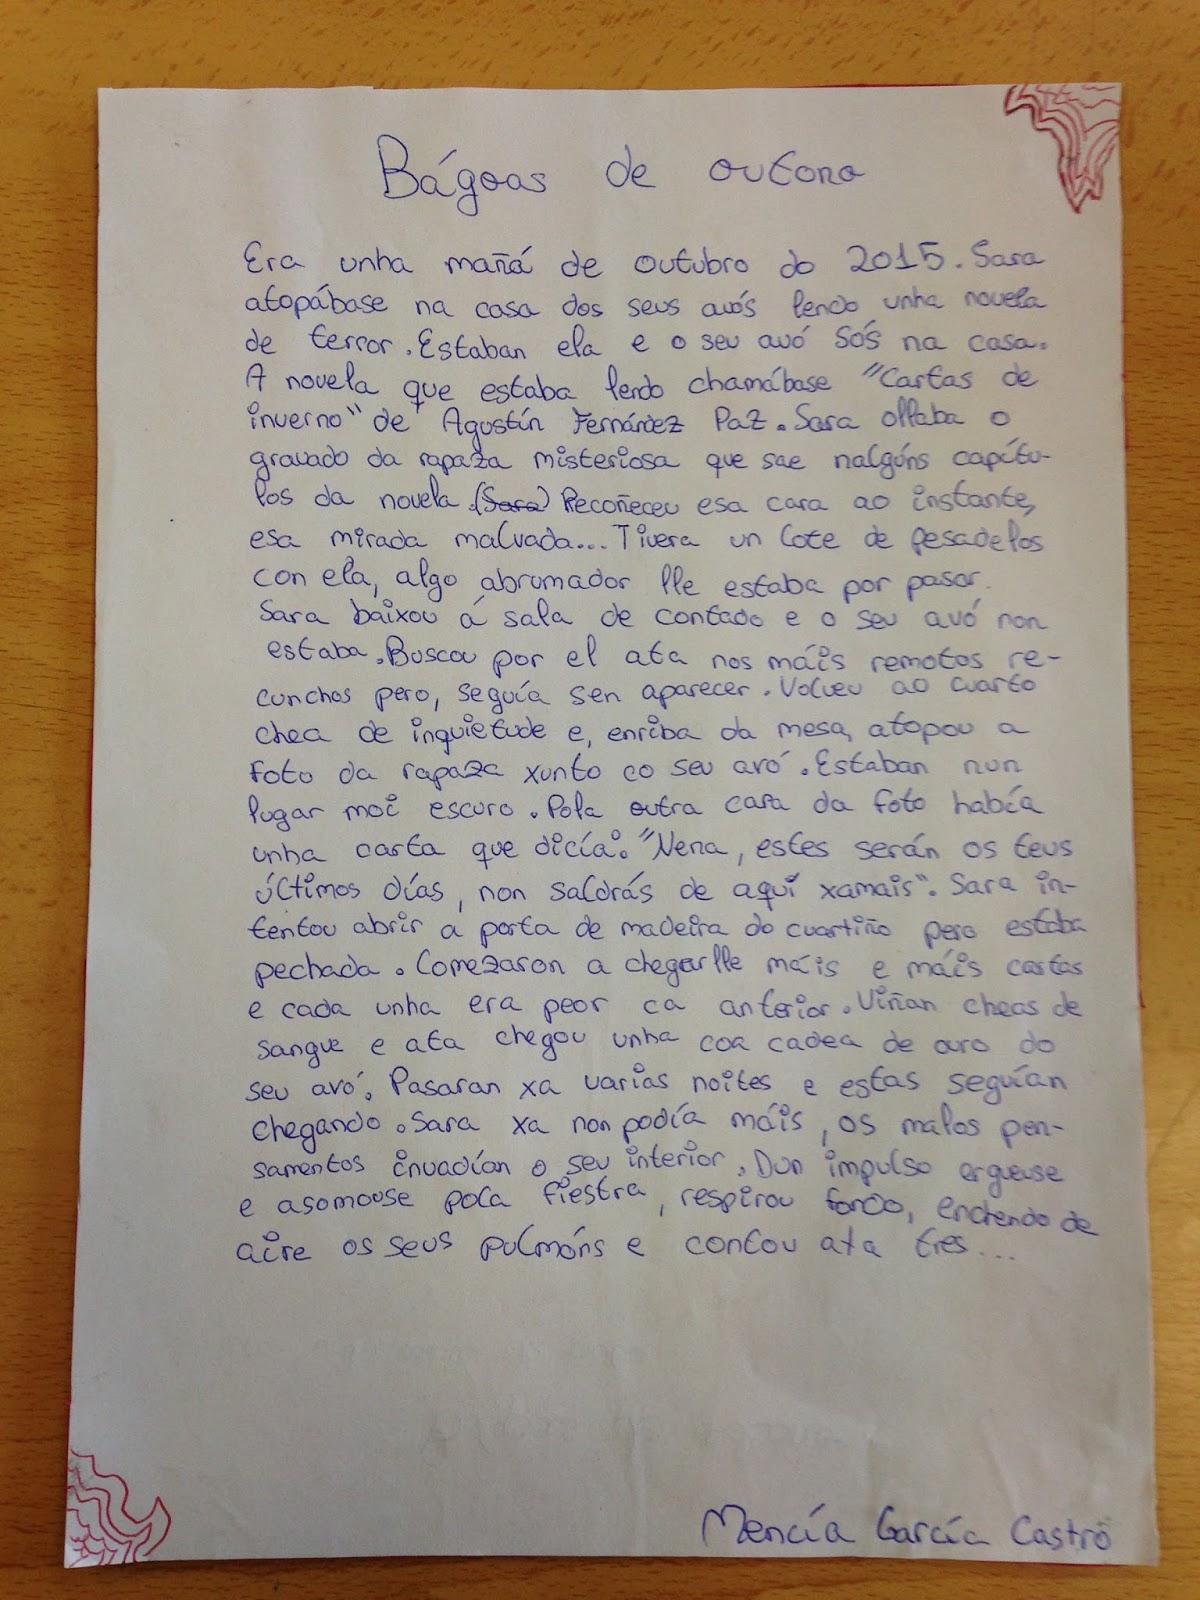 Bágoas de outono
Era unha mañá de outubro do 2015. Sara
atopábase na casa dos seus avós lendo unha novela
de terror. Estaban ela e o seu avó sós na casa.
A novela que estaba lendo chamábase "Cartas de
inverno" de Agustín Fernández Paz. Sara ollaba o
gravado da rapaza misteriosa que sae nalgúns capítu-
los da novela. (Sara) Recoñeceu esa cara ao instante,
esa mirada malvada... Tivera un lote de pesadelos
con ela, algo abrumador lle estaba por pasar.
Sara baixou á sala de contado e o seu avó non
estaba. Buscou por el ata nos máis remotos re-
cunchos pero, seguía sen aparecer. Volveu ao cuarto
chea de inquietude e, enriba da mesa, atopou a
foto da rapaza xunto co seu avó. Estaban nun
lugar moi escuro. Pola outra cara da foto había
unha carta que dicía: "Nena, estes serán os teus
últimos días, non saldrás de aquí xamais". Sara in-
tentou abrir a porta de madeira do cuartiño pero estaba
pechada. Comezaron a chegarlle máis e máis cartas
e cada unha era peor ca anterior. Viñan cheas de
sangue e ata chegou unha coa cadea de ouro do
seu avó. Pasaran xa varias noites e estas seguían
chegando. Sara xa non podía máis, os malos pen-
samentos invadían o seu interior. Dun impulso ergueuse
e asomouse pola fiestra, respirou fondo, enchendo de
aire os seus pulmóns e contou ata tres...
Mencía García Castro